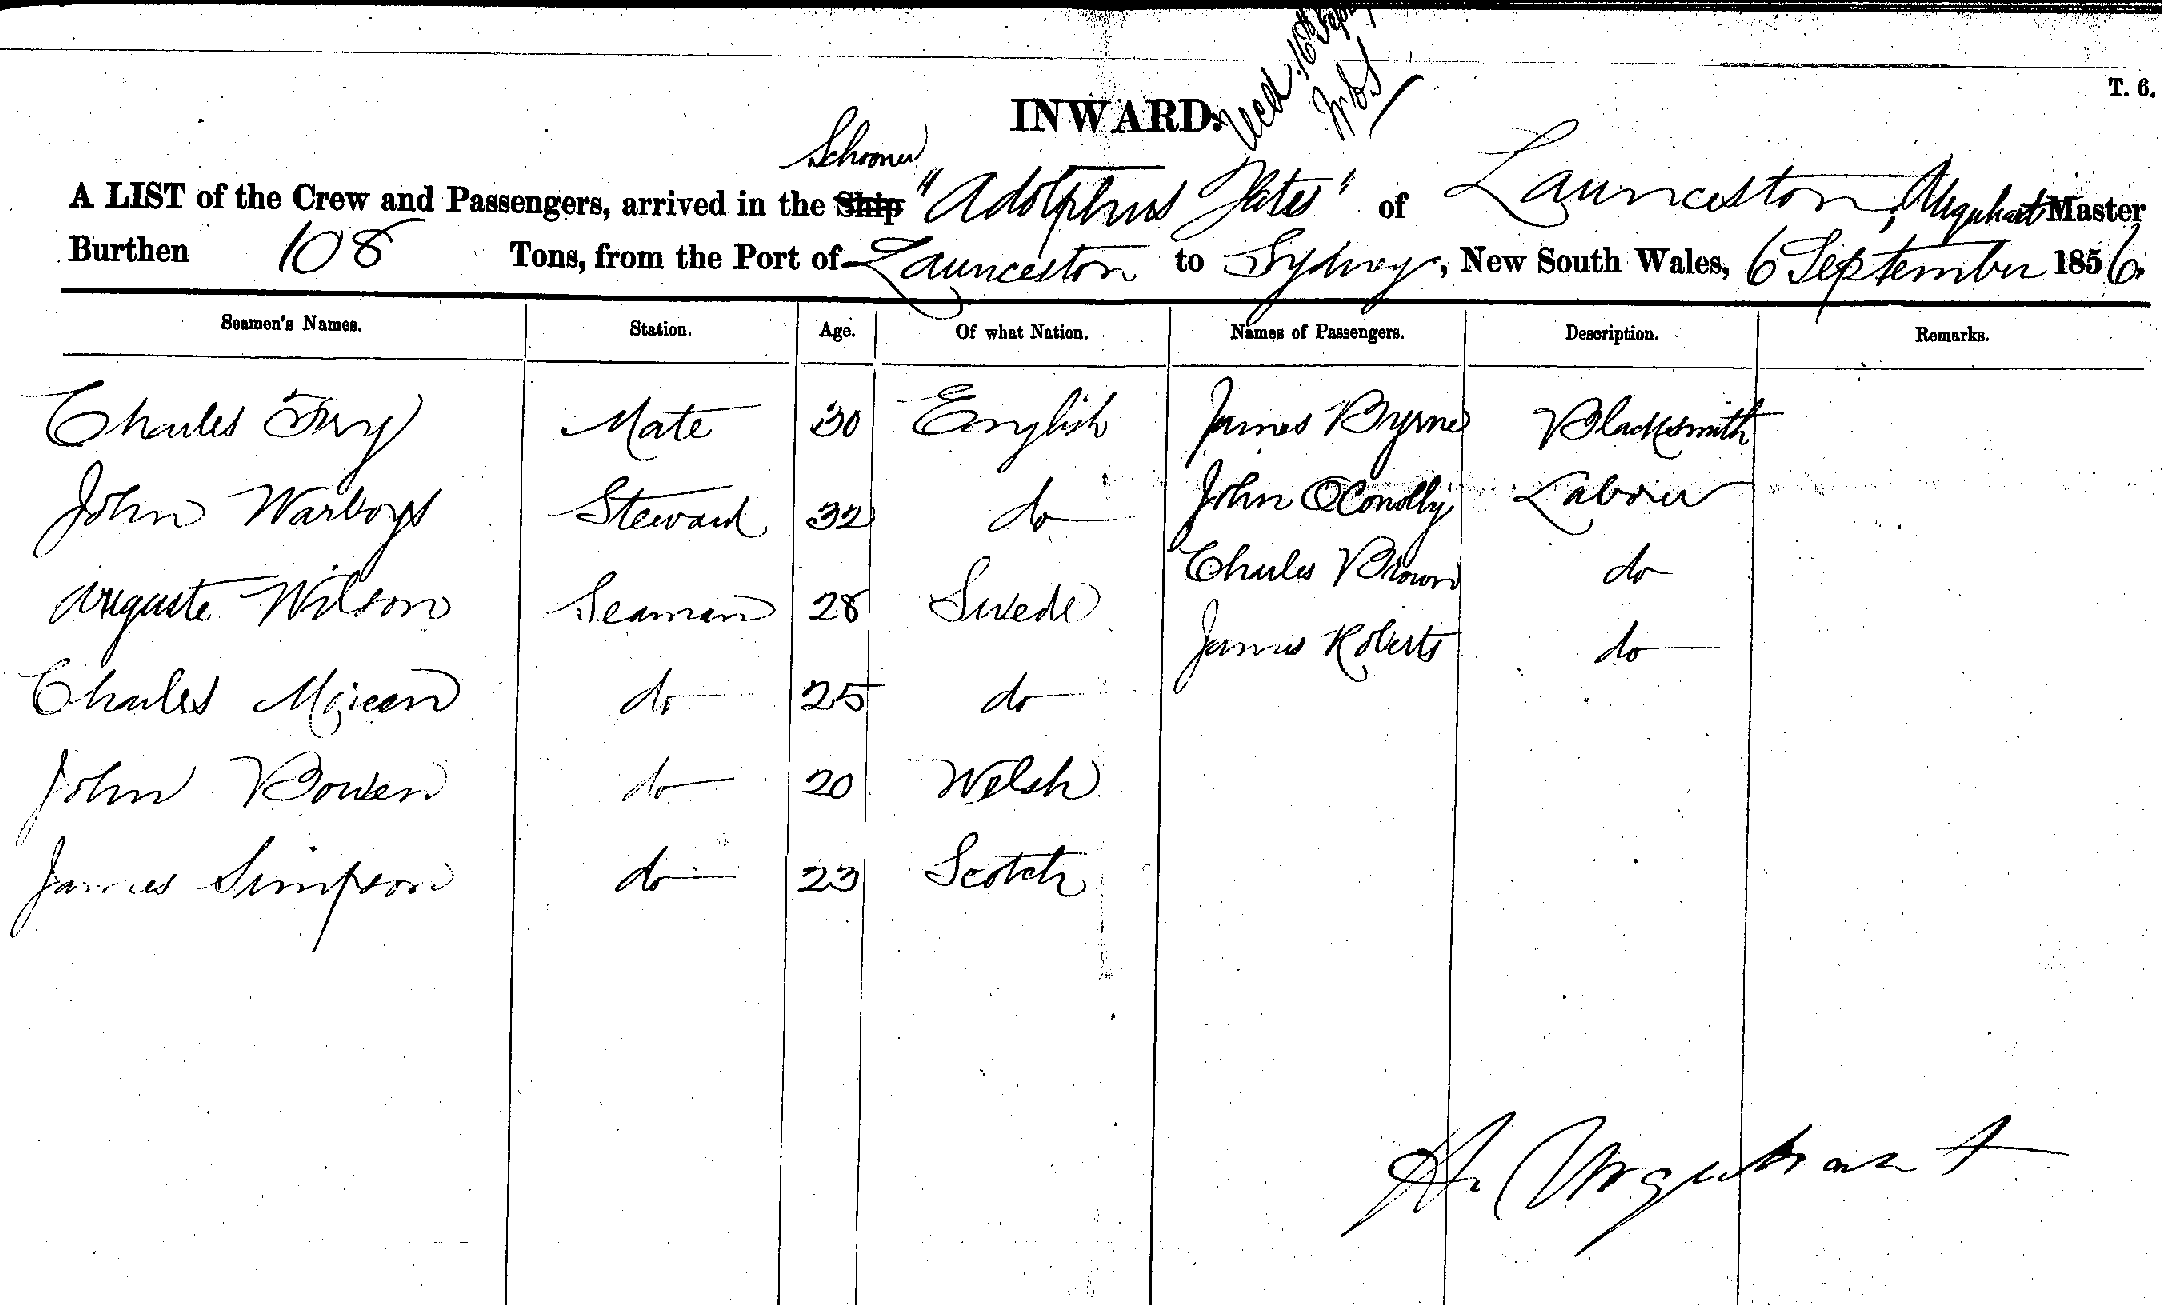 T. 6.
Recd. 16th Sept
INWARD.
Schooner
A LIST of the Crew and Passengers, arrived in the Ship "Adolphus Yates" of Launceston, Urquhart Master
Burthen 108 Tons, from the Port of Launceston to Sydney, New South Wales, 6 September 1856.
Seamen's Names. Station. Age. Of what Nation. Names of Passengers. Description. Remarks.
Charles Fry Mate 30 English James Byrne Blacksmith
John Warboys Steward 32 do John O'Conolly Labourer
Auguste Wilson Seaman 28 Swede Charles Brown do
Charles do 25 do James Roberts do
John Bowen do 20 Welsh
James Simpson do 23 Scotch
A. Urquhart